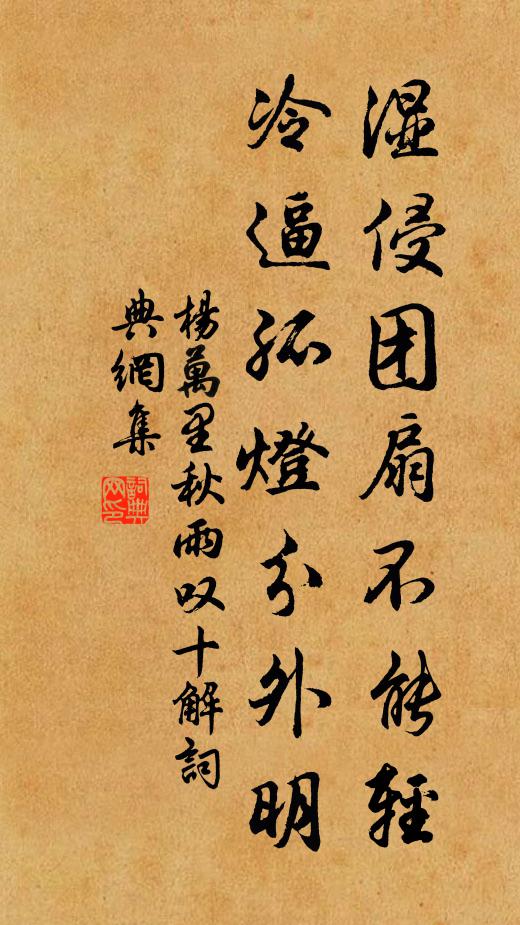 湿侵团扇不能輕
冷逼孤燈分外明
楊萬里秋雨叹十解詞
典網集
詞典網印